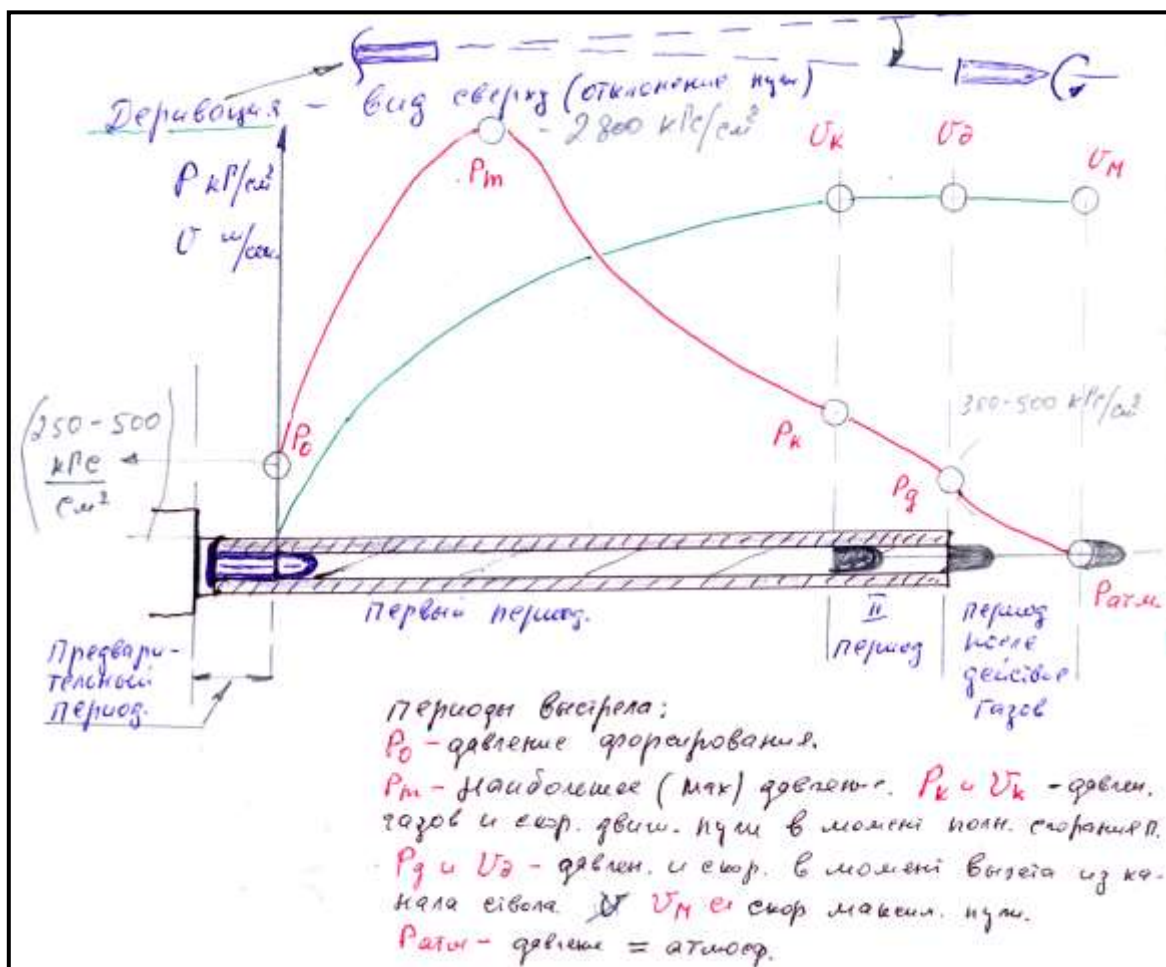 Деривация - вид сверху (отклонение пули)
- 2800 кГс/см²
P кГ/см²
υ м/сек.
Pm
υк
υд
υм
(250-500 кГс/см²)
P₀
Pк
300-500 кГс/см²
Pд
Pатм.
Предвари-
тельный
период.
Первый период.
II
период
период
после
действие
газов
периоды выстрела:
P₀ - давление форсирования.
Pm - наибольшее (max) давление. Pк и υк - давлен.
газов и скор. движ. пули в момент полн. сгорания п.
Pд и υд - давлен. и скор. в момент вылета из ка-
нала ствола. υм скор максим. пули.
Pатм - давление = атмосф.